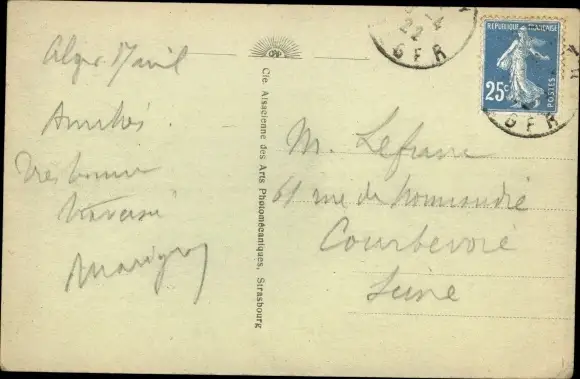 Alger 17 avril
Amitiés.
Très bonne
traversée
Cie. Alsacienne des Arts Photomécaniques, Strasbourg
22
G F R
REPUBLIQUE FRANÇAISE
25c
POSTES
G F R
M. Lefranc
61 rue de Normandie
Courbevoie
Seine